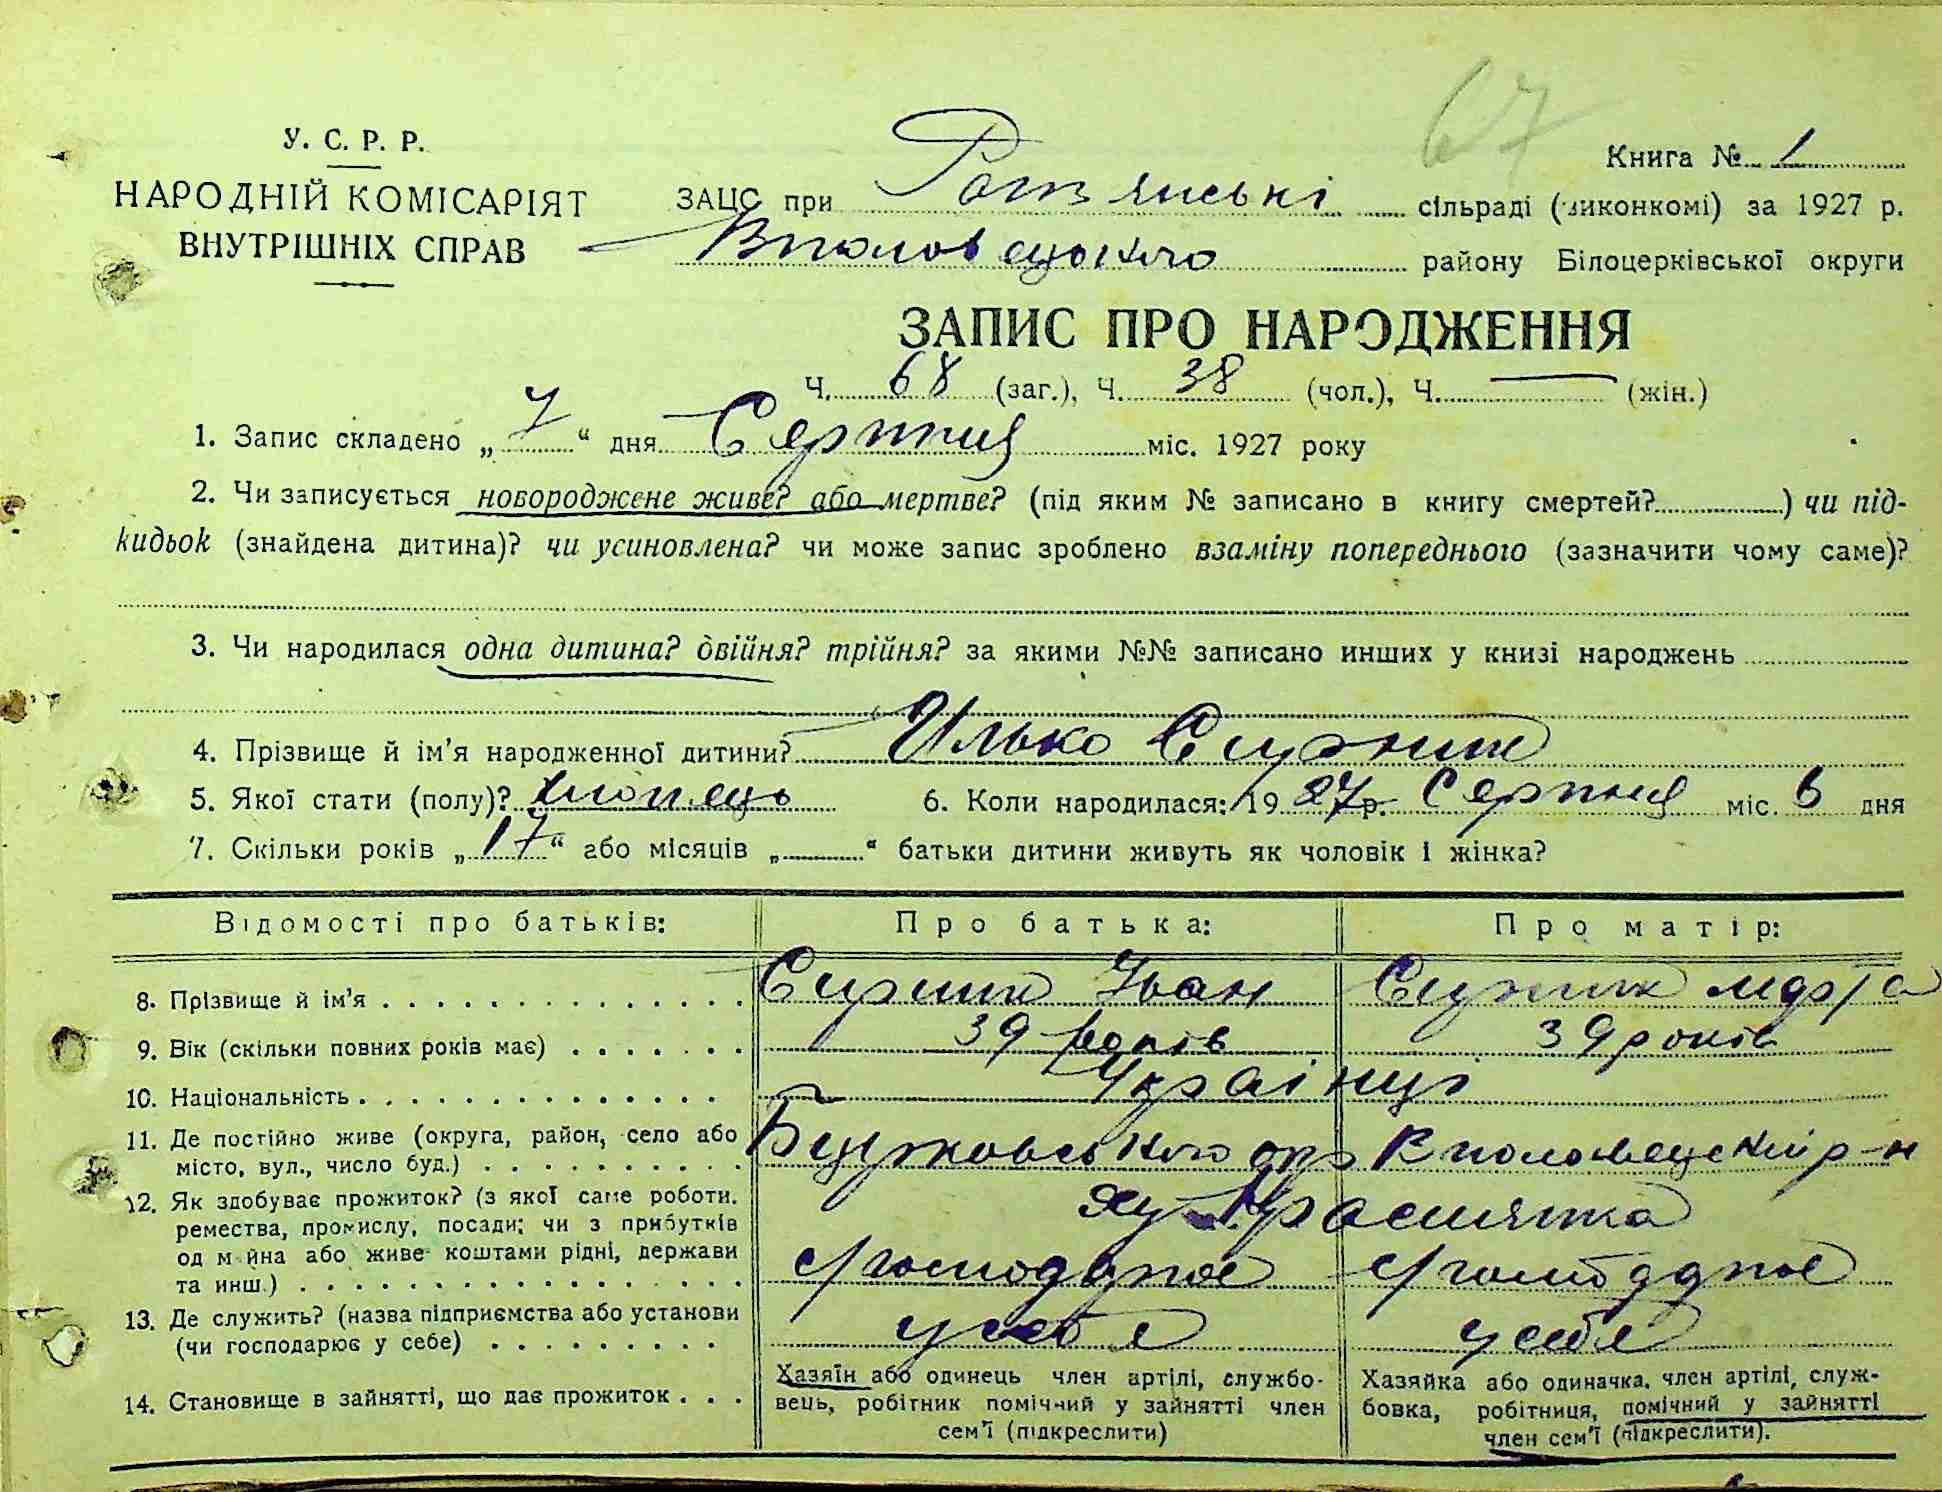 67
У. С. Р. Р.
Книга № 1
НАРОДНІЙ КОМІСАРІЯТ
ЗАЦС при сільраді (виконкомі) за 1927 р.
ВНУТРІШНІХ СПРАВ
району Білоцерківської округи
ЗАПИС ПРО НАРОДЖЕННЯ
Ч. 68 (заг.), Ч. 38 (чол.), Ч. — (жін.)
1. Запис складено „ 7 “ дня Серпня міс. 1927 року
2. Чи записується новороджене живе? або мертве? (під яким № записано в книгу смертей?) чи під-
кидьок (знайдена дитина)? чи усиновлена? чи може запис зроблено взаміну попереднього (зазначити чому саме)?
3. Чи народилася одна дитина? двійня? трійня? за якими №№ записано инших у книзі народжень
4. Прізвище й ім'я народженної дитини? Илько
5. Якої стати (полу)? хлопець 6. Коли народилася: 1927 р. Серпня міс. 6 дня
7. Скільки років „ 17 “ або місяців „ “ батьки дитини живуть як чоловік і жінка?
Відомості про батьків: Про батька: Про матір:
8. Прізвище й ім'я Іван
9. Вік (скільки повних років має) 39 років 39 років
10. Національність Українці
11. Де постійно живе (округа, район, село або
місто, вул., число буд.) р-н
12. Як здобуває прожиток? (з якої саме роботи.
ремества, промислу, посади; чи з прибутків
од майна або живе коштами рідні, держави
та инш.)
13. Де служить? (назва підприємства або установи
(чи господарює у себе) у себя у себя
14. Становище в зайнятті, що дає прожиток
Хазяїн або одинець член артілі, службо-
вець, робітник помічний у зайнятті член
сем'ї (підкреслити)
Хазяйка або одиначка. член артілі, служ-
бовка, робітниця, помічний у зайнятті
член сем'ї (підкреслити).